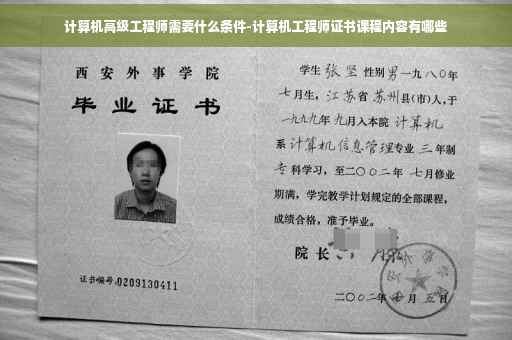 计算机高级工程师需要什么条件-计算机工程师证书课程内容有哪些
西安外事学院
毕业证书
证书编号:0209130411
学生 张坚 性别 男 一九八〇年
七月生，江苏省 苏州县(市)人，于
一九九九年 九月入本院 计算机
系 计算机信息管理专业 三 年制
专 科学习，至二〇〇二年 七月修业
期满，学完教学计划规定的全部课程，
成绩合格，准予毕业。
院 长
二〇〇二年 月 五日